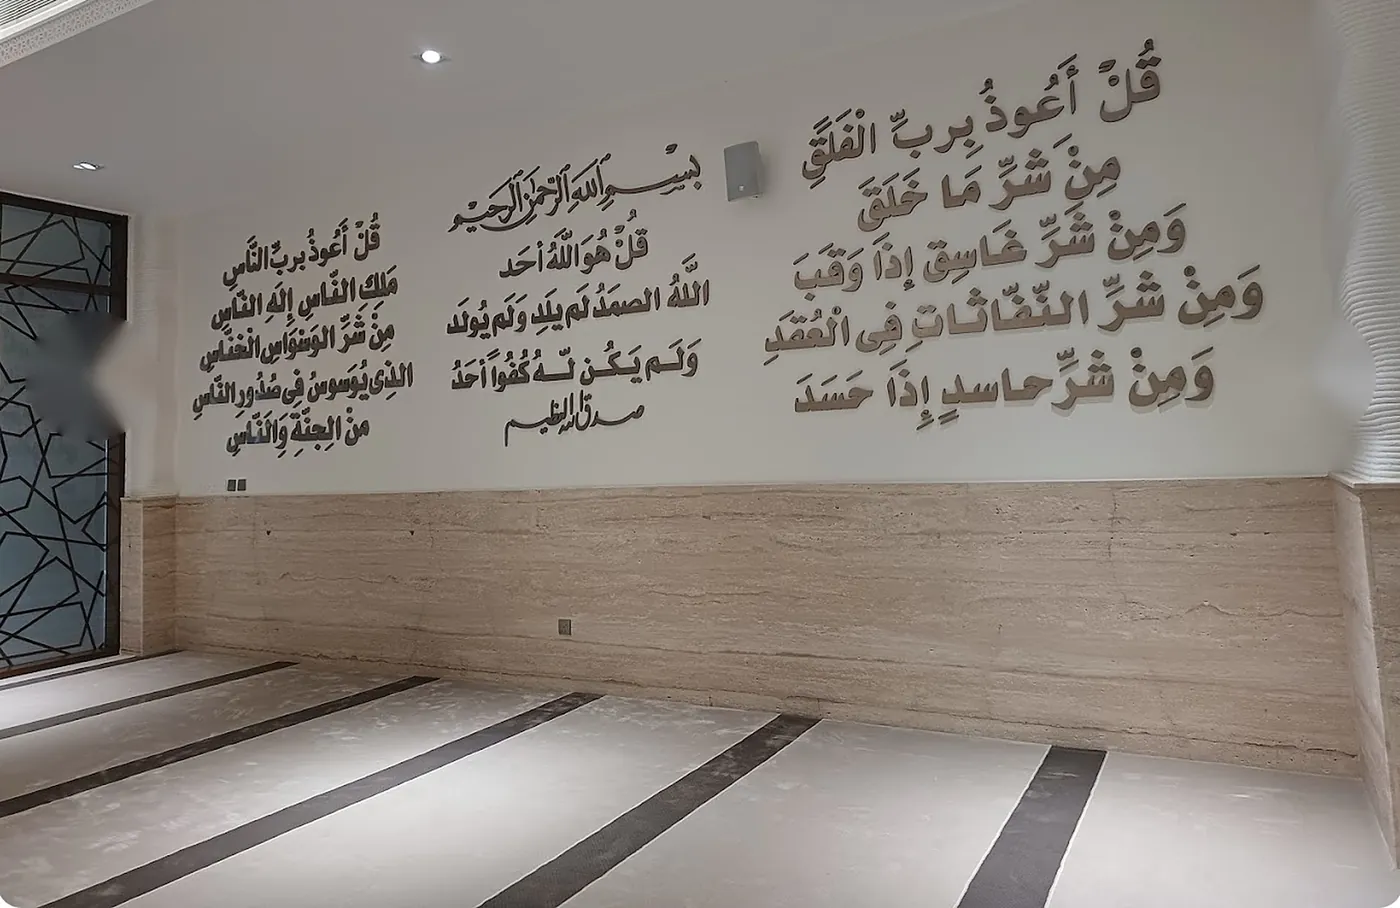 قُلْ أَعُوذُ بِربِّ الْفَلَقِ
مِنْ شَرِّ مَا خَلَقَ
وَمِنْ شَرِّ غَاسِقٍ إِذَا وَقَبَ
وَمِنْ شَرِّ النّفّاثَاتِ فِى الْعُقَدِ
وَمِنْ شَرِّ حاسدٍ إِذَا حَسَدَ
بِسْمِ ٱللَّهِ ٱلرَّحْمَٰنِ ٱلرَّحِيمِ
قُلْ هُوَ اللَّهُ أحَد
اللَّهُ الصمَدُ لَم يَلِد وَلَم يُولَد
وَلَم يَكُن لّهُ كُفُواً أحَدُ
صدق الله العظيم
قُلْ أَعُوذُ بربِّ النَّاسِ
مَلِكِ النَّاسِ إِلَهِ النَّاسِ
مِنْ شَرِّ الوَسْوَاسِ الْخَنَّاسِ
الذِى يُوَسوسُ فِى صُدُورِ النَّاسِ
منْ الجِنَّةِ وَالنَّاسِ